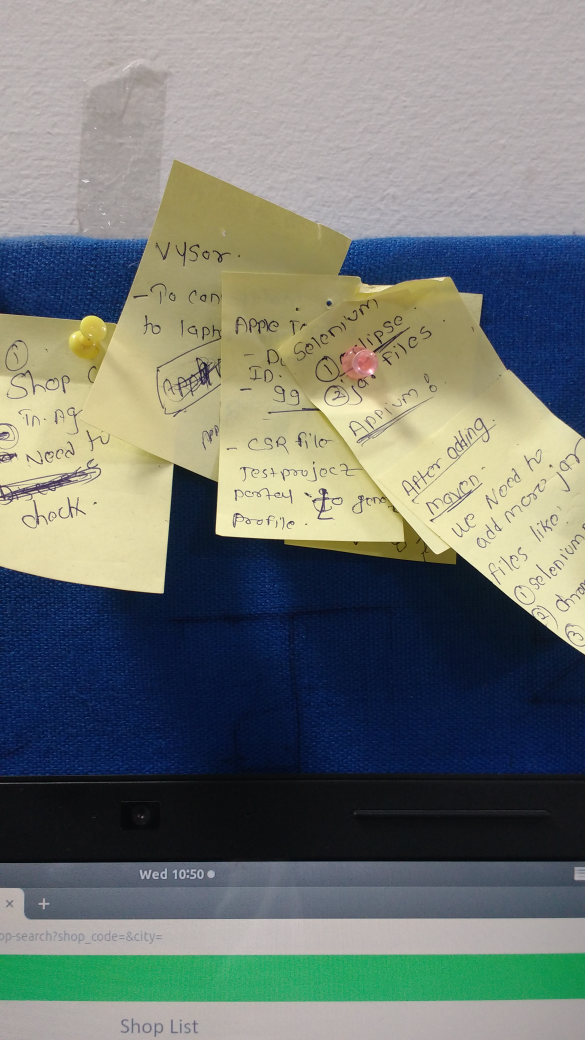 ①
Shop
In. Ag
Need to
check.
VYSOR.
- To con
to lapt
Apple Te
- D
ID.
- 99
- CSR file
Testproject
portal to gene
Profile.
Selenium
① eclipse
② jar files.
Appium!
After adding
maven.
we Need to
add more jar
files like.
① selenium
②
③
Wed 10:50
× +
op-search?shop_code=&city=
Shop List